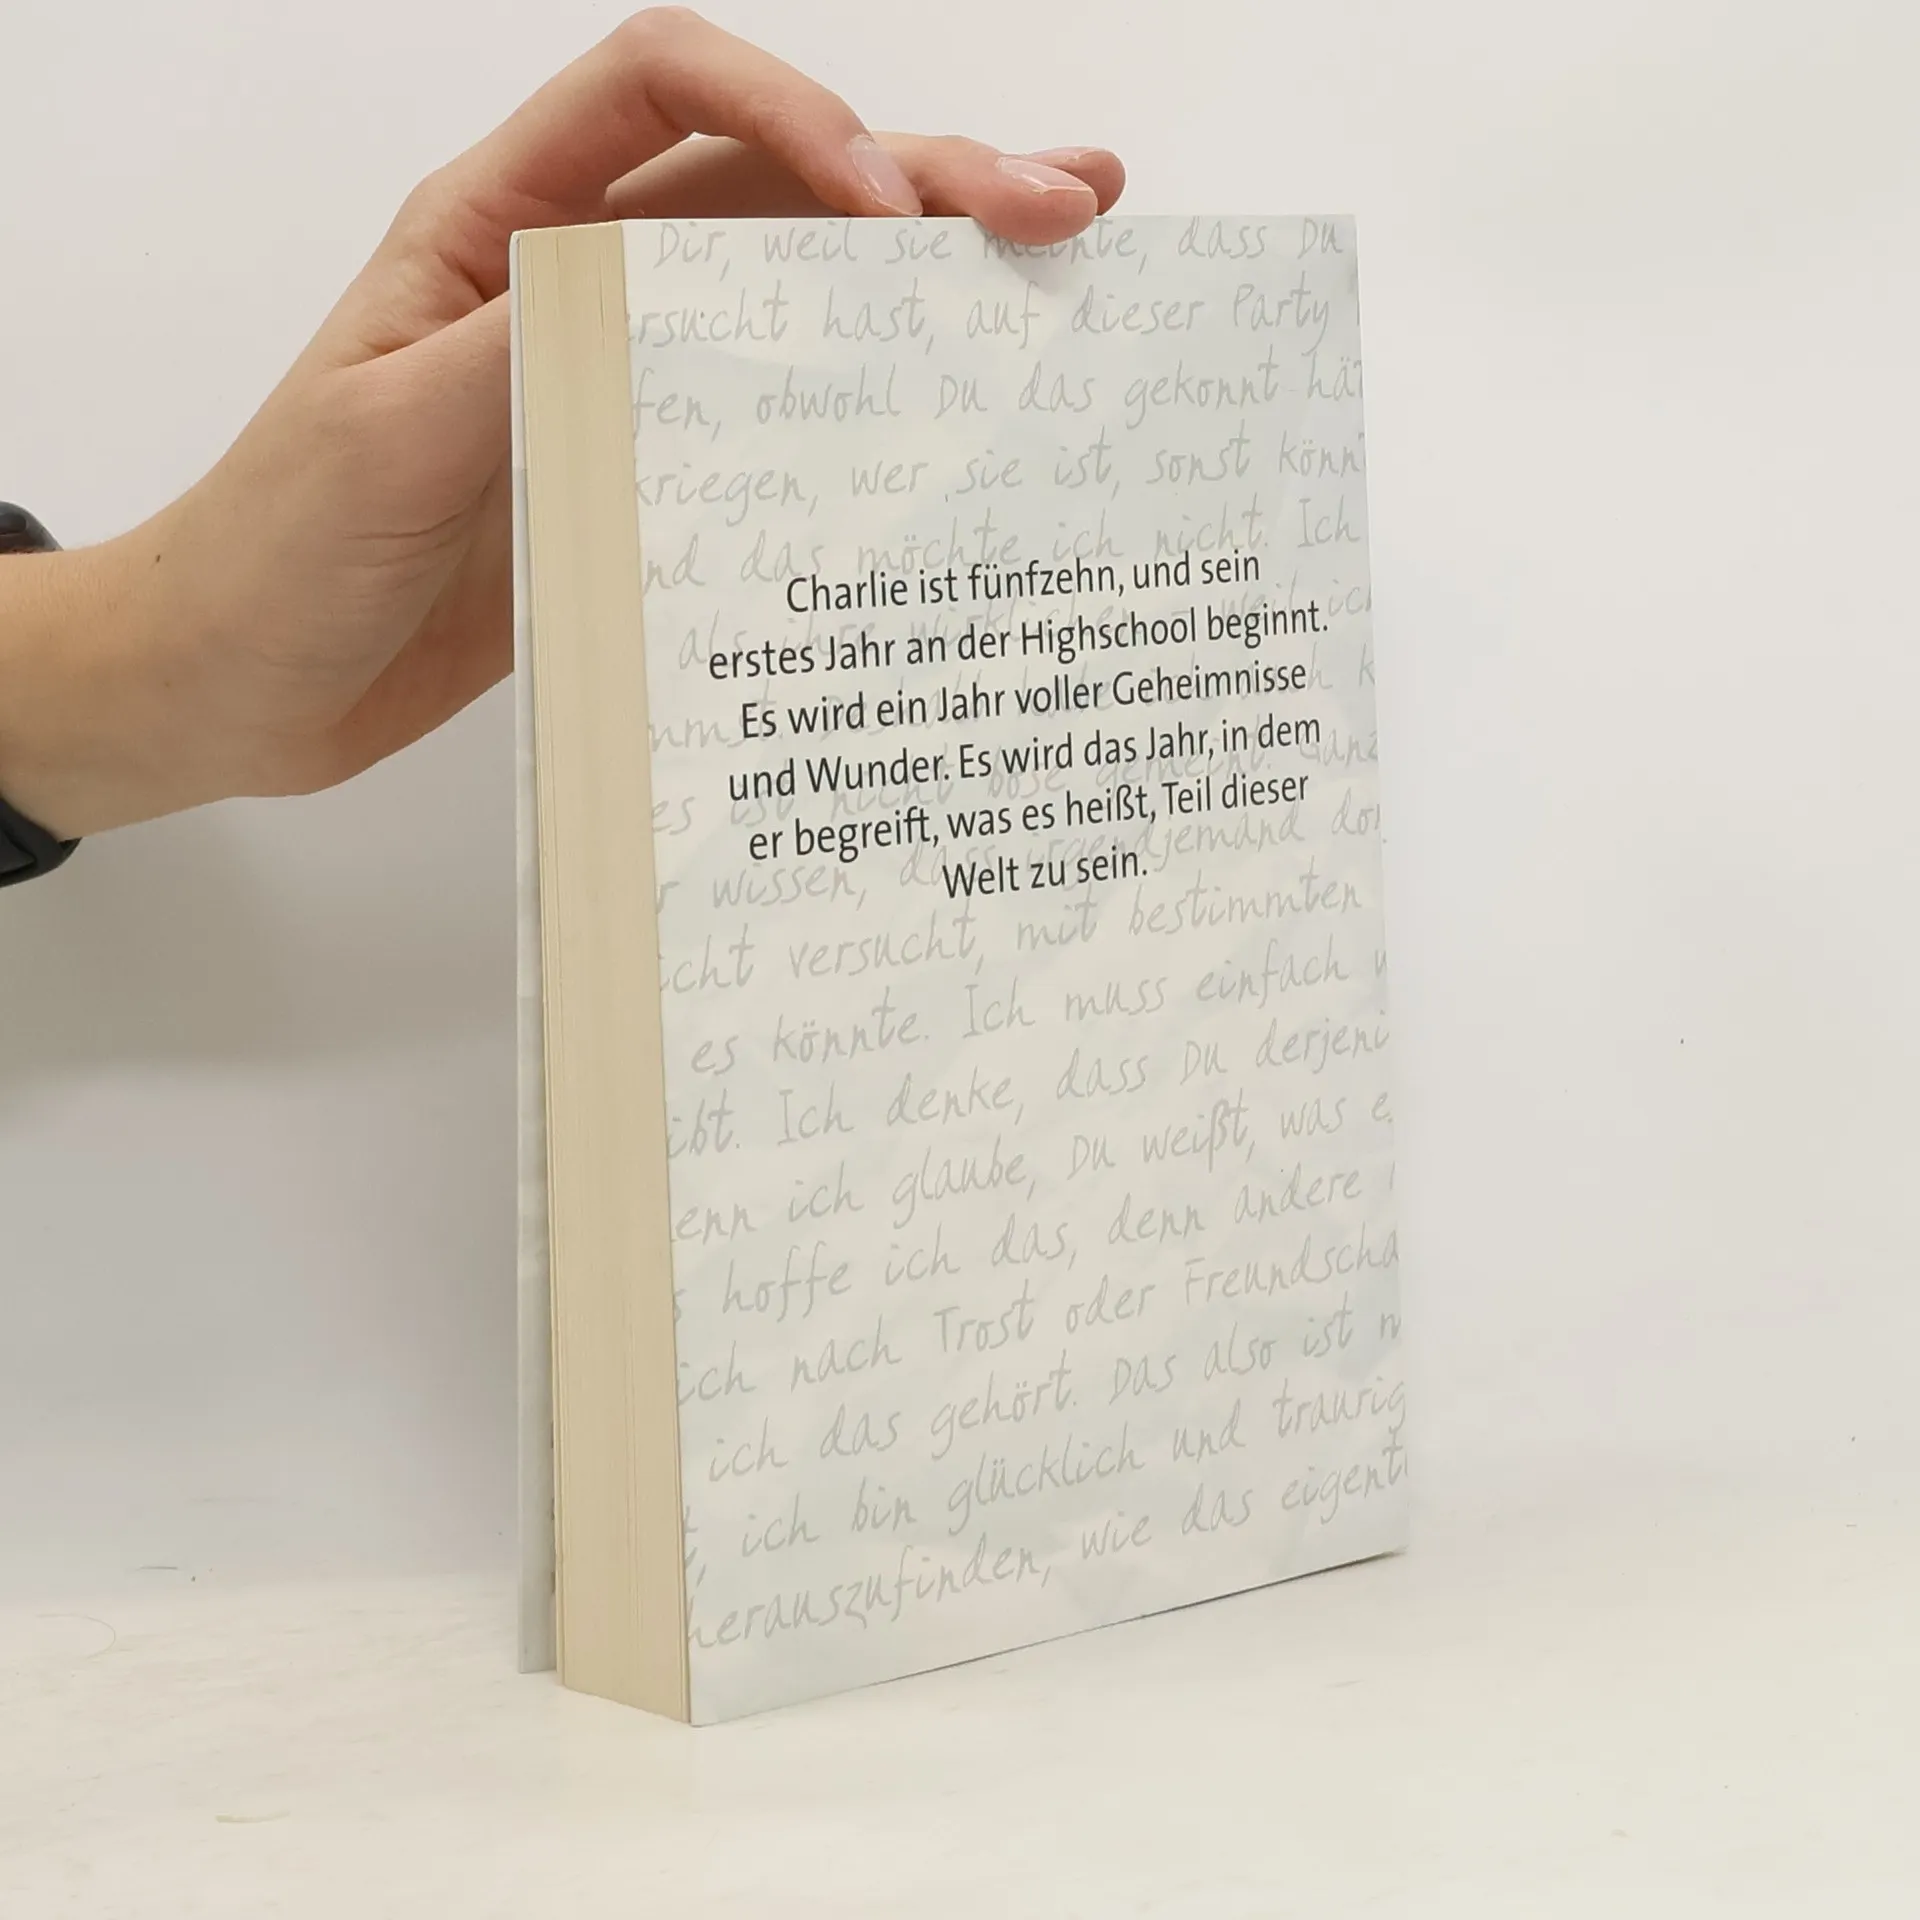 Dir, weil sie meinte, dass Du
rsucht hast, auf dieser Party
fen, obwohl Du das gekonnt hät
kriegen, wer sie ist, sonst könnt
nd das möchte ich nicht. Ich
Charlie ist fünfzehn, und sein
als ihre wirklichen – weil ich
erstes Jahr an der Highschool beginnt.
Es wird ein Jahr voller Geheimnisse
und Wunder. Es wird das Jahr, in dem
es ist nicht böse gemeint. Ganz
er begreift, was es heißt, Teil dieser
r wissen, dass irgendjemand dor
Welt zu sein.
icht versucht, mit bestimmten
es könnte. Ich muss einfach w
ibt. Ich denke, dass Du derjeni
enn ich glaube, Du weißt, was e
s hoffe ich das, denn andere
ich nach Trost oder Freundscha
ich das gehört. Das also ist m
t, ich bin glücklich und traurig
herauszufinden, wie das eigentl